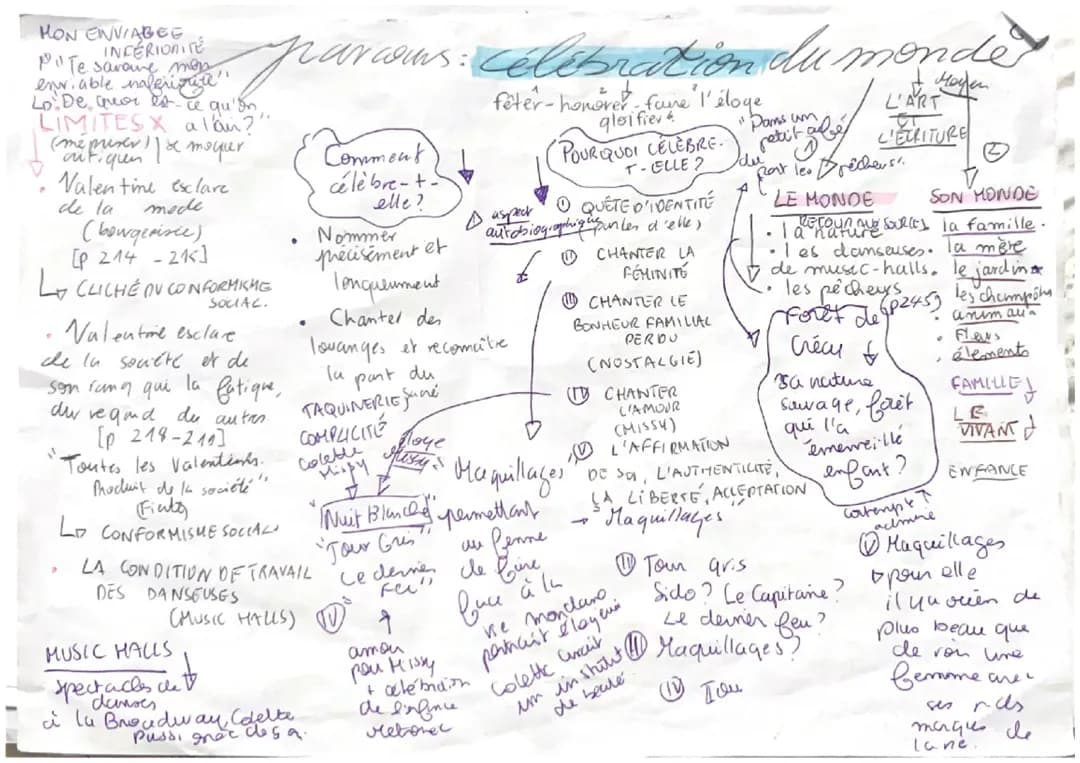 parcours : célébration du monde
fêter - honorer - faire l'éloge
glorifier
MON ENVIABLE
INFÉRIORITÉ
"Te savoure mon
enviable infériorité"
De quoi est-ce qu'on
a l'air?"
LIMITES X
(mépriser) se moquer
critiquer
• Valentine esclave
de la mode
(bourgeoisie)
[p 214 - 215]
CLICHÉ DU CONFORMISME
SOCIAL.
• Valentine esclave
de la société et de
son rang qui la fatigue,
du regard des autres
[p 218-211]
"Toutes les Valentines.
Produit de la société"
CONFORMISME SOCIAL
• LA CONDITION DE TRAVAIL
DES DANSEUSES
(MUSIC HALLS)
MUSIC HALLS
spectacles de
danses
à la Broadway, Colette
Comment
célèbre-t-
elle?
• Nommer
précisément et
longuement
• Chanter des
louanges et reconnaître
la part du
TAQUINERIE
COMPLICITÉ
Colette
Missy
éloge
Missy
"Nuit Blanche"
"Jour Gris"
"Le dernier
Feu"
IV
amour
pour Missy
+ célébration
de enfance
aspect
autobiographique
POURQUOI CÉLÈBRE-
T-ELLE?
I QUÊTE D'IDENTITÉ
(parler d'elle)
II CHANTER LA
FÉMINITÉ
III CHANTER LE
BONHEUR FAMILIAL
PERDU
(NOSTALGIE)
IV CHANTER
L'AMOUR
(MISSY)
V L'AFFIRMATION
DE SOI, L'AUTHENTICITÉ,
LA LIBERTÉ, ACCEPTATION
→ Maquillages"
Maquillages"
permettant
au femme
de faire
face à la
vie mondaine
portrait élogieux
Colette avait
un institut
de beauté
III Jour gris
Sido? Le Capitaine?
Le dernier feu?
II Maquillages?
IV Jou
"Dans un
du
pêcheurs".
Moyen
L'ART
ET
L'ÉCRITURE
1
LE MONDE
RETOUR AUX SOURCES
• la nature
• les danseuses.
de music-halls.
• les pêcheurs
Forêt de
Crécy
p245
sa nature
sauvage, forêt
qui l'a
émerveillé
enfant?
contempt
admire
2
SON MONDE
la famille.
la mère
le jardin
les champêtre
• animaux
• Fleurs
• éléments
FAMILLE
LE
VIVANT
ENFANCE
V Maquillages
pour elle
il y a rien de
plus beau que
de voir une
femme avec
ses rides
marques de